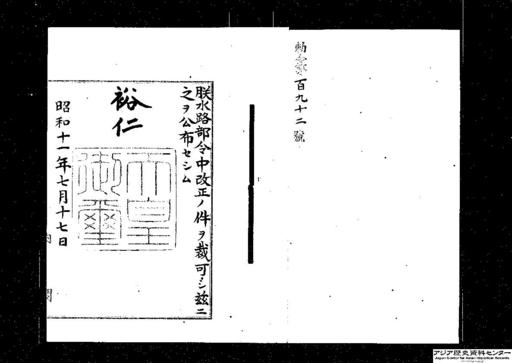 勅令第百九十二號
朕水路部令中改正ノ件ヲ裁可シ茲ニ
之ヲ公布セシム
裕仁
天皇御璽
昭和十一年七月十七日
内閣
アジア歴史資料センター
Japan Center for Asian Historical Records